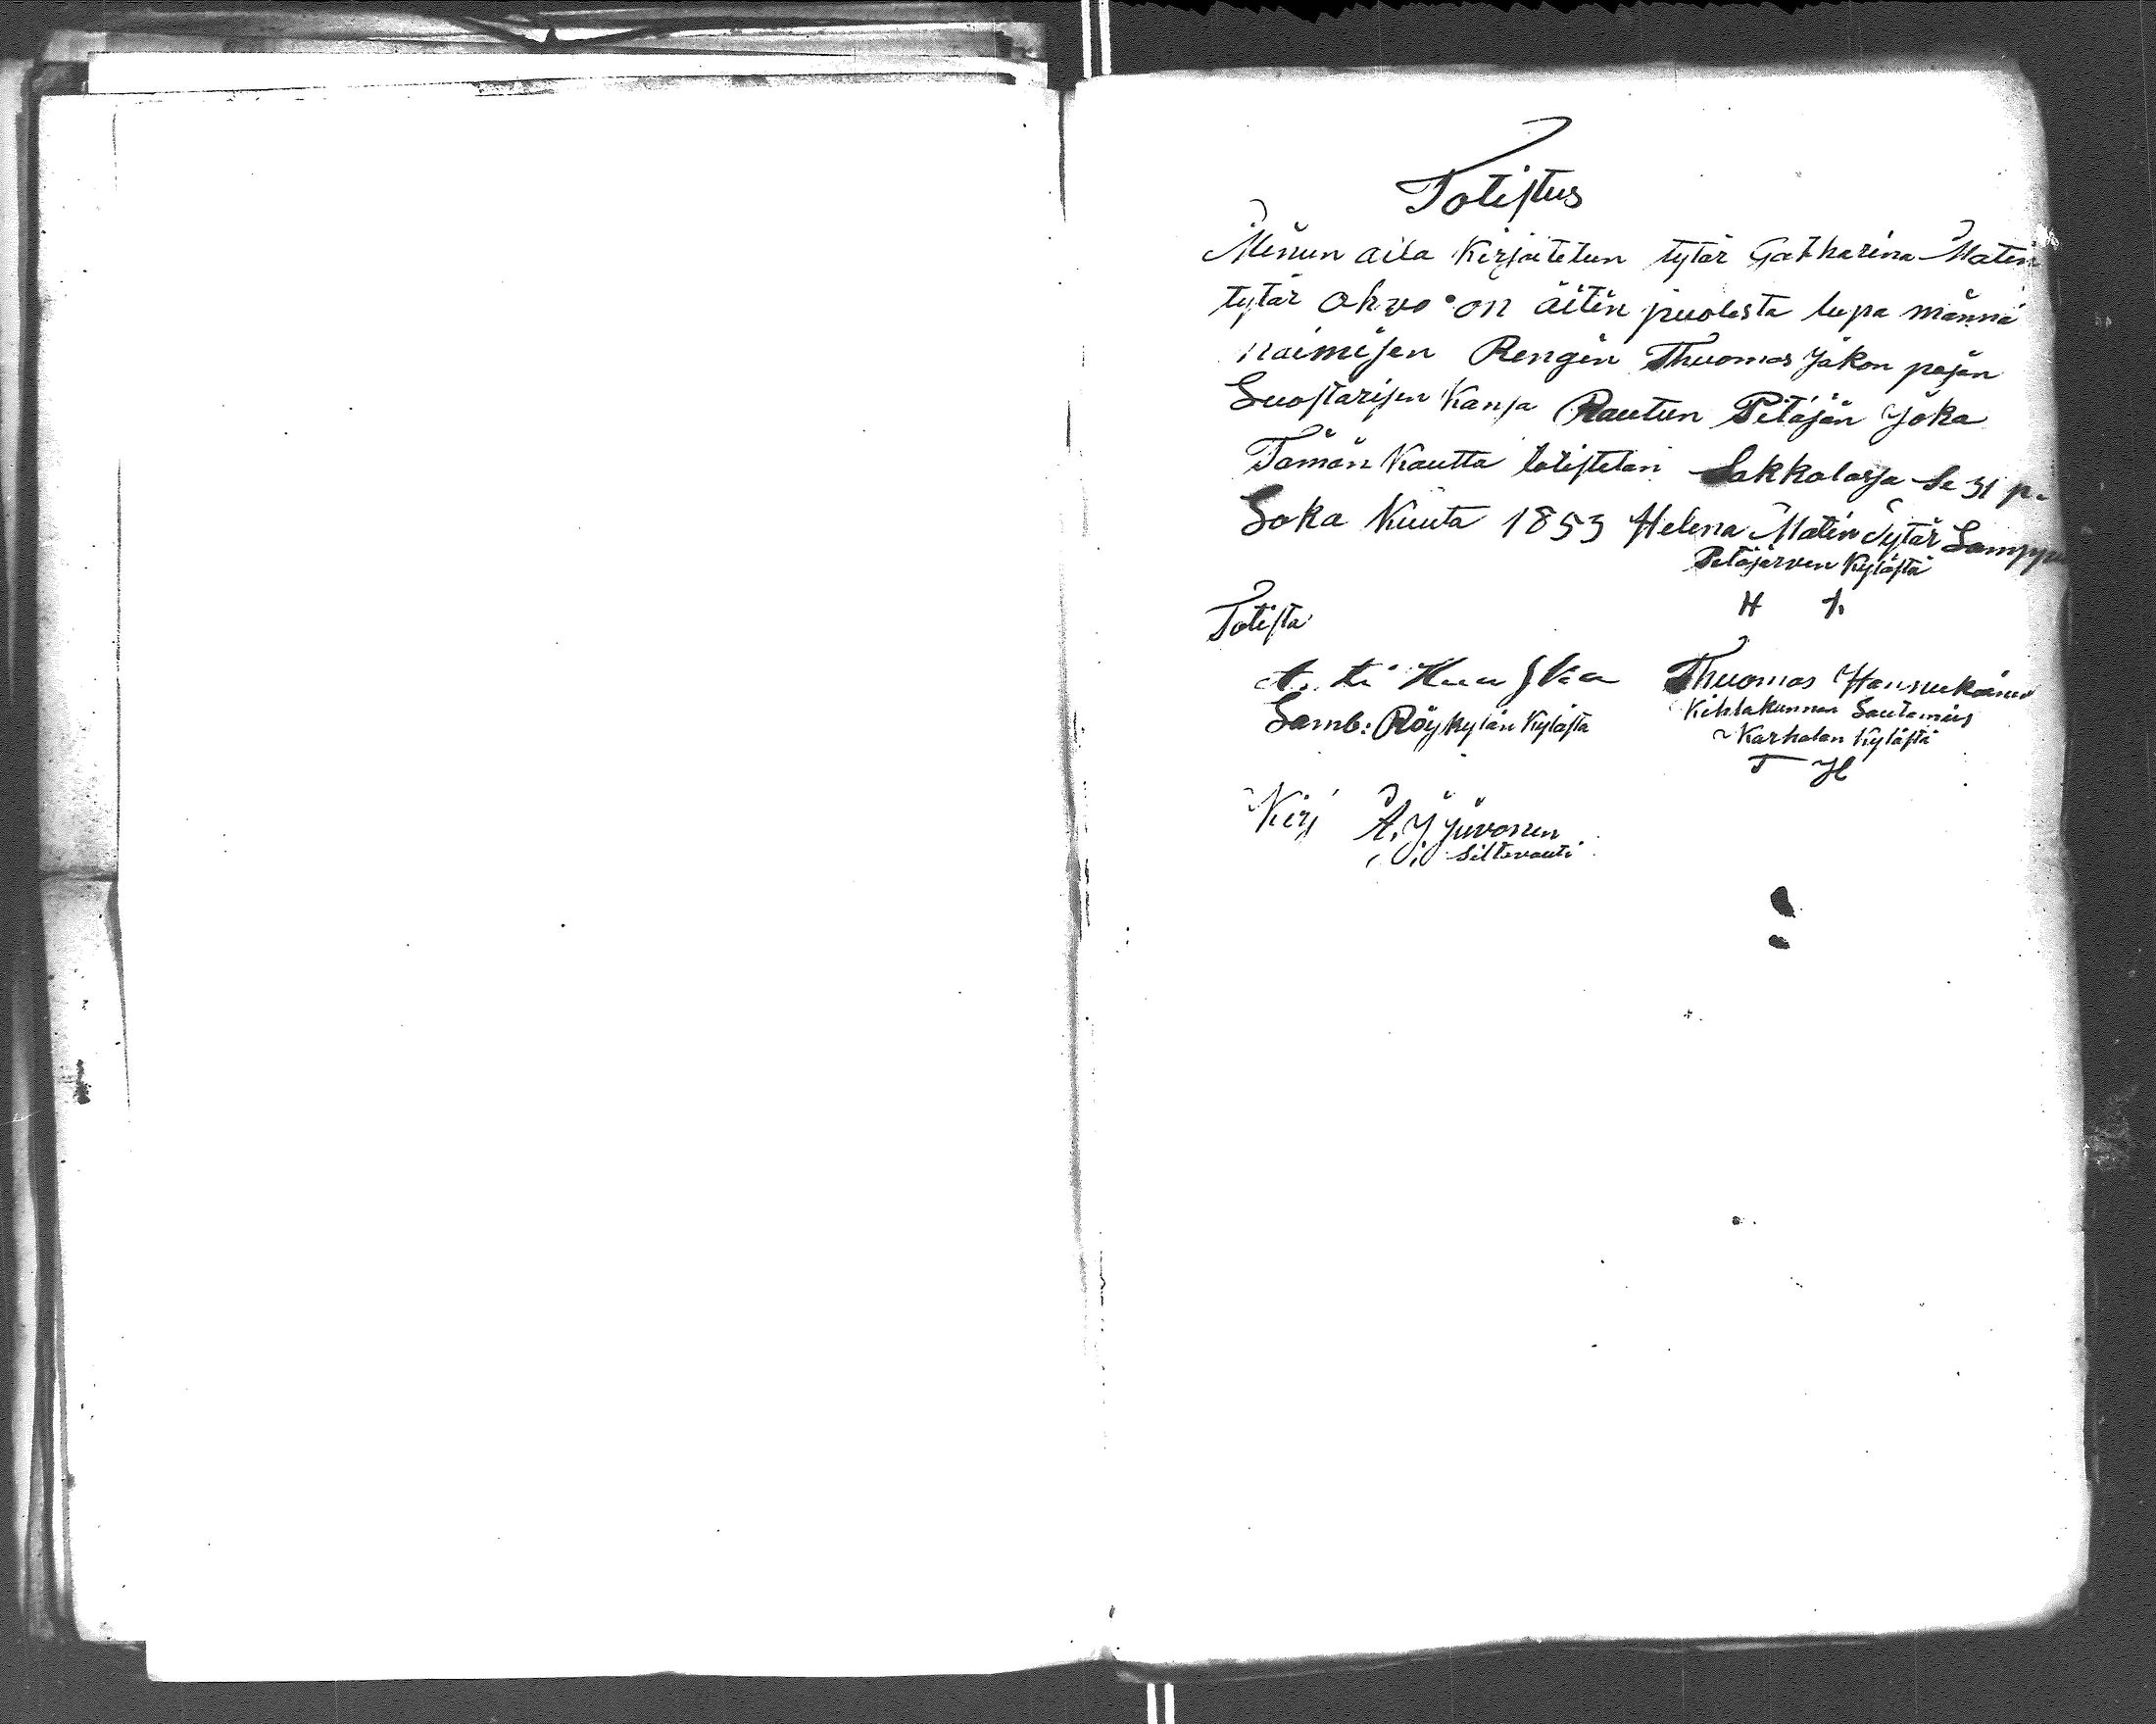 Totistus
Minun aila Kirjoitetun tytär Catharina Matin
tytär Ahvo on äitin puolesta lupa männä
naimisen Rengin Thuomas Jakon pojan
Suostarisen Kansa Rautun Pitäjän Joka
Tämän Kautta totistetan Sakkolassa Se 31 p:
Loka Kuuta 1853 Helena Matin Tytär Lamppu
Petäjärven Kylästä
H L
Totista
Antti Kuiska Thuomas Hannukainen
Lamb: Röykylän Kylästä Kihlakunnan Lautamies
Karholan Kylästä
T H
Kirj A. J. Juvonen
Siltavouti